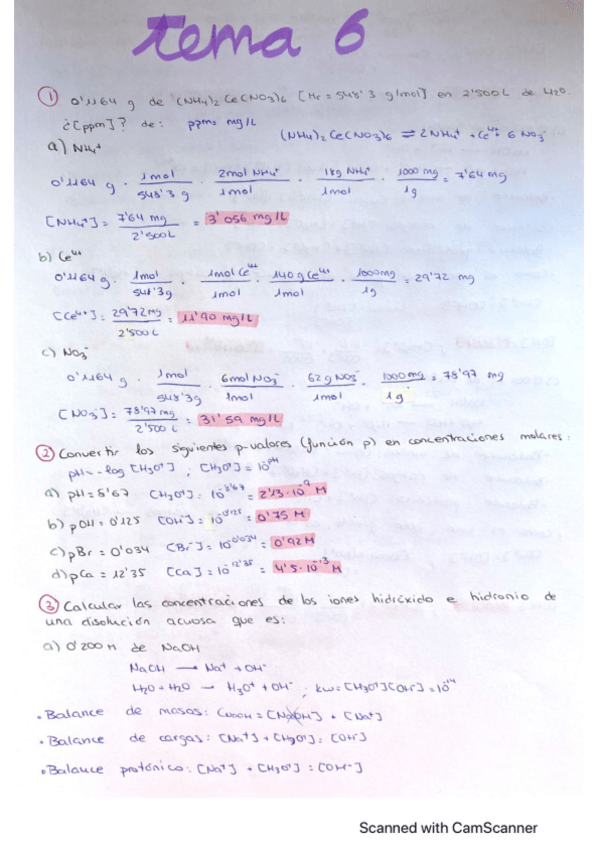 tema 6
① 0'1164 g de (NH4)2 Ce(NO3)6 [Mr = 548'3 g/mol] en 2'500L de H2O.
¿[ppm]? de: ppm= mg/L (NH4)2Ce(NO3)6 ⇌ 2NH4+ + Ce4+ 6 NO3-
a) NH4+
0'1164 g · 1mol/548'3 g · 2mol NH4+/1mol · 18g NH4+/1mol · 1000 mg/1g = 7'64 mg
[NH4+] = 7'64 mg/2'500L = 3'056 mg/L
b) Ce4+
0'1164 g · 1mol/548'3g · 1mol Ce4+/1mol · 140g Ce4+/1mol · 1000mg/1g = 29'72 mg
[Ce4+] = 29'72mg/2'500L = 11'90 mg/L
c) NO3-
0'1164 g · 1mol/548'3g · 6mol NO3-/1mol · 62g NO3-/1mol · 1000mg/1g = 78'97 mg
[NO3-] = 78'97mg/2'500 L = 31'59 mg/L
② Convertir los siguientes p-valores (función p) en concentraciones molares:
pH = -log [H3O+] ; [H3O+] = 10^pH
a) pH = 8'67 [H3O+] = 10^-8'67 = 2'13·10^-9 M
b) pOH = 0'125 [OH-] = 10^-0'125 = 0'75 M
c) pBr = 0'034 [Br-] = 10^-0'034 = 0'92 M
d) pCa = 12'35 [Ca] = 10^-12'35 = 4'5·10^-13 M
③ Calcular las concentraciones de los iones hidróxido e hidronio de
una disolución acuosa que es:
a) 0'200 M de NaOH
NaOH → Na+ + OH-
H2O + H2O → H3O+ + OH- ; Kw = [H3O+][OH-] = 10^-14
• Balance de masas: CNaOH = [NaOH] + [Na+]
• Balance de cargas: [Na+] + [H3O+] = [OH-]
• Balance protónico: [Na+] + [H3O+] = [OH-]
Scanned with CamScanner